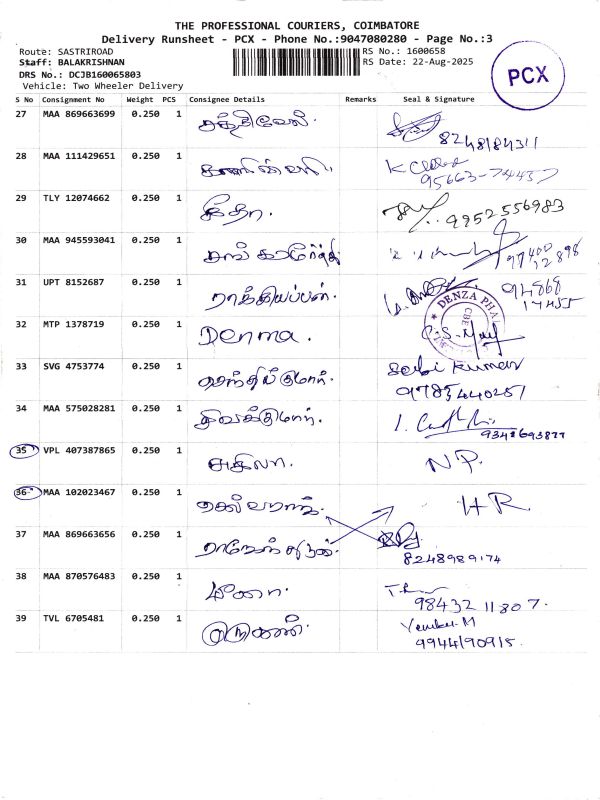 THE PROFESSIONAL COURIERS, COIMBATORE
Delivery Runsheet - PCX - Phone No.:9047080280 - Page No.:3
Route: SASTRIROAD RS No.: 1600658
Staff: BALAKRISHNAN RS Date: 22-Aug-2025
DRS No.: DCJB160065803
Vehicle: Two Wheeler Delivery
PCX
S No Consignment No Weight PCS Consignee Details Remarks Seal & Signature
27 MAA 869663699 0.250 1 சக்திவேல்.
8248184311
28 MAA 111429651 0.250 1
95663-74457
29 TLY 12074662 0.250 1 கீதா. 9952556983
30 MAA 945593041 0.250 1
31 UPT 8152687 0.250 1 ராக்கியப்பன். 94868
17455
DENZA PHA
CBE
32 MTP 1378719 0.250 1 Denma.
33 SVG 4753774 0.250 1 செந்தில்குமார். Selvi kumar
9785440251
34 MAA 575028281 0.250 1 சிவக்குமார்.
35 VPL 407387865 0.250 1 அகிலா. N.P.
36 MAA 102023467 0.250 1 HR
37 MAA 869663656 0.250 1
8248989174
38 MAA 870576483 0.250 1 மீனா.
98432 11807.
39 TVL 6705481 0.250 1 முருகன். Venkat M
9944190915.